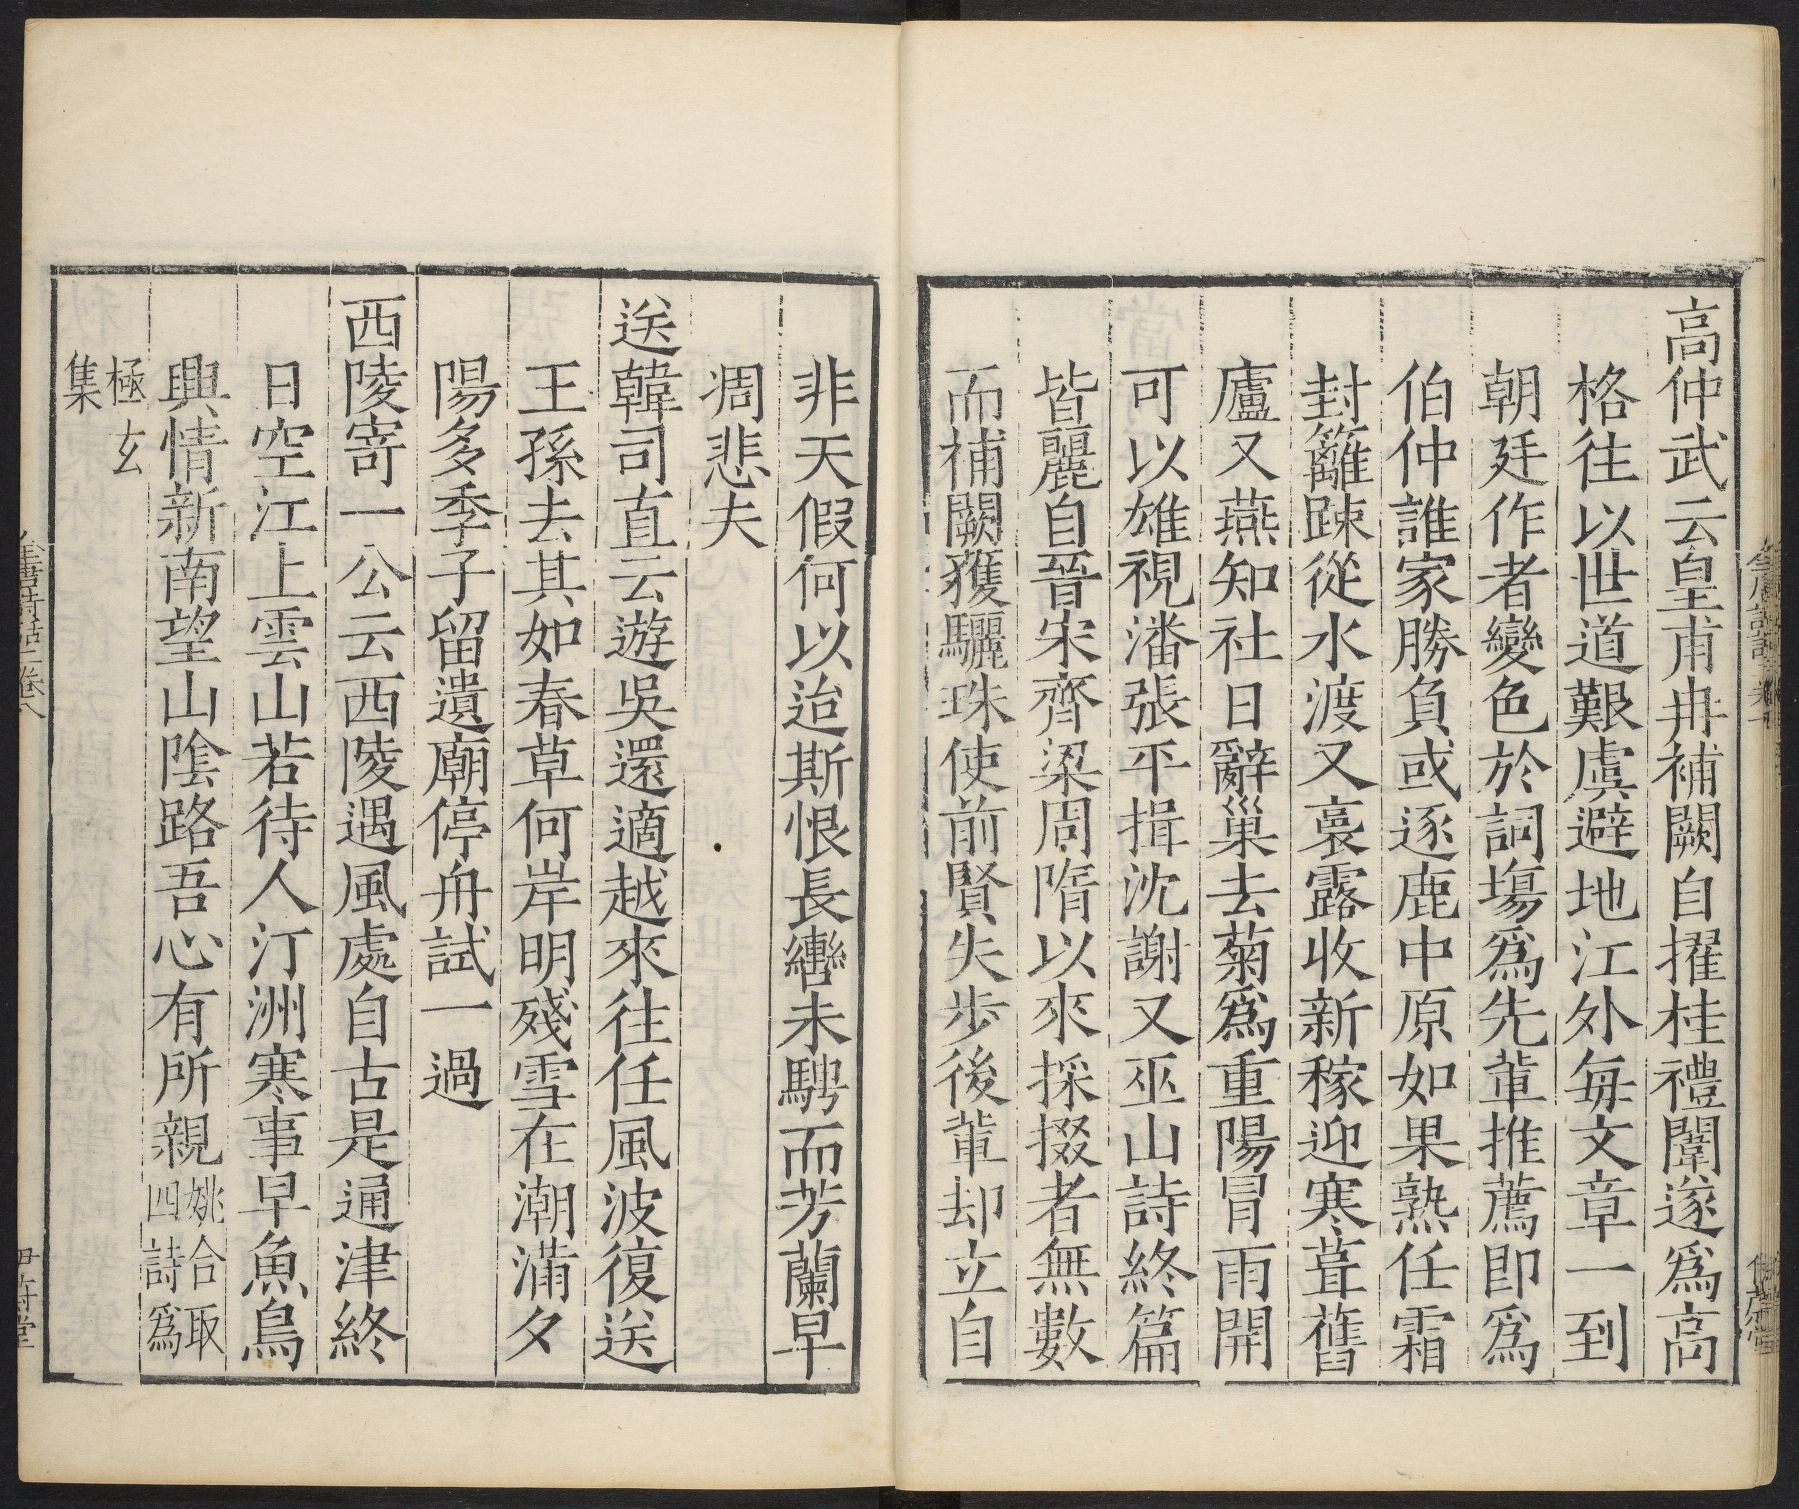 高仲武云皇甫冉補闕自擢桂禮闈遂爲高
格往以世道艱虞避地江外每文章一到
朝廷作者變色於詞塲爲先軰推薦即爲
伯仲誰家勝負或逐鹿中原如果熟任霜
封籬踈從水渡又裛露收新稼迎寒葺舊
廬又燕知社日辭巢去菊爲重陽冒雨開
可以雄視潘張平揖沈謝又巫山詩終篇
皆麗自晉宋齊梁周隋以來採掇者無數
而補闕獲驪珠使前賢失步後軰却立自
非天假何以迨斯恨長轡未騁而芳蘭早
凋悲夫
送韓司直云遊吳還適越來往任風波復送
王孫去其如春草何岸明殘雪在潮滿夕
陽多季子留遺廟停舟試一過
西陵寄一公云西陵遇風處自古是通津終
日空江上雲山若待人汀洲寒事早魚鳥
興情新南望山陰路吾心有所親姚合取四詩爲
極玄集
全唐詩話二卷八